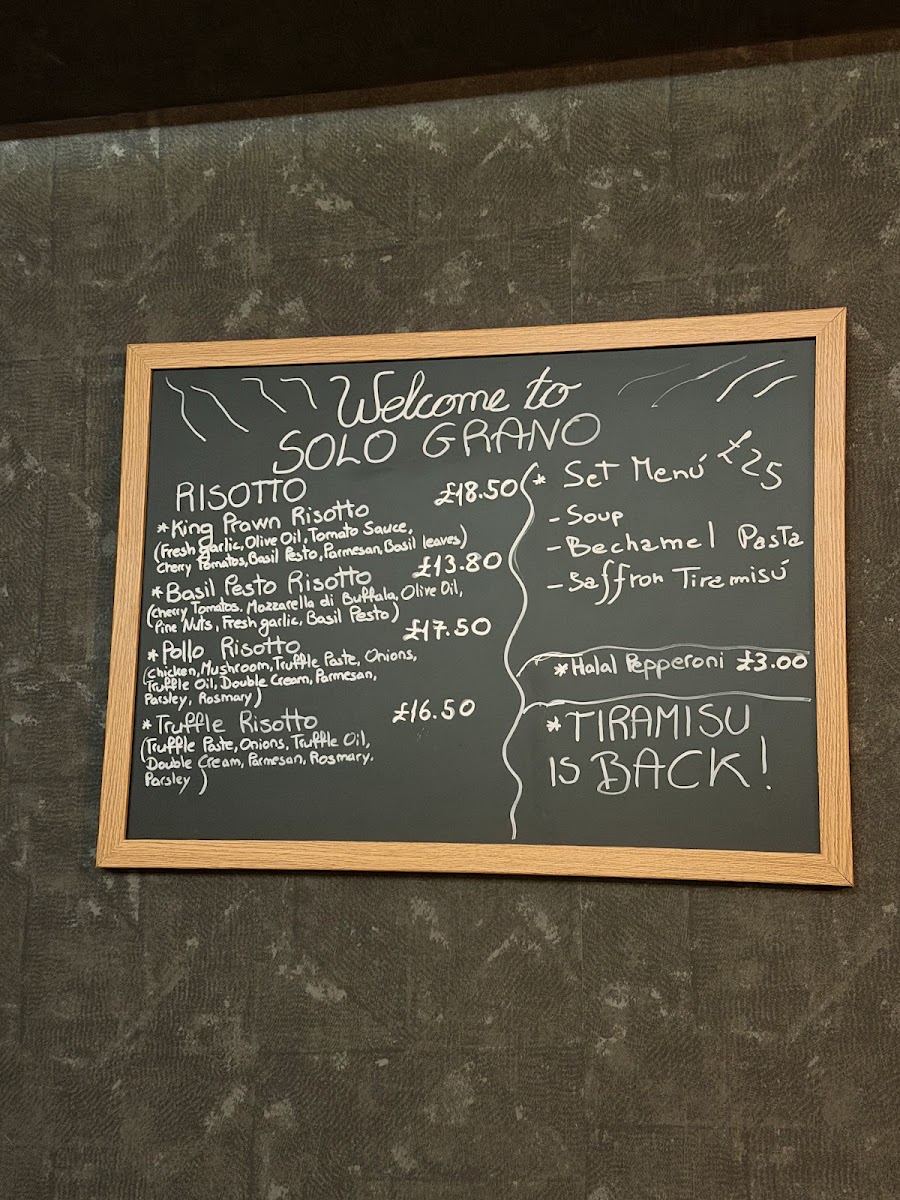 Welcome to
SOLO GRANO
RISOTTO
£18.50
*King Prawn Risotto
(Fresh garlic, Olive Oil, Tomato Sauce,
Cherry Tomatos, Basil Pesto, Parmesan, Basil leaves)
£13.80
*Basil Pesto Risotto
(Cherry Tomatos. Mozzarella di Buffala, Olive Oil,
Pine Nuts, Fresh garlic, Basil Pesto)
£17.50
*Pollo Risotto
(Chicken, Mushroom, Truffle Paste, Onions,
Truffle Oil, Double Cream, Parmesan,
Parsley, Rosmary)
£16.50
*Truffle Risotto
(Truffle Paste, Onions, Truffle Oil,
Double Cream, Parmesan, Rosmary.
Parsley)
* Set Menú £25
- Soup
- Bechamel Pasta
- Saffron Tiramisú
*Halal Pepperoni £3.00
*TIRAMISU
IS BACK!